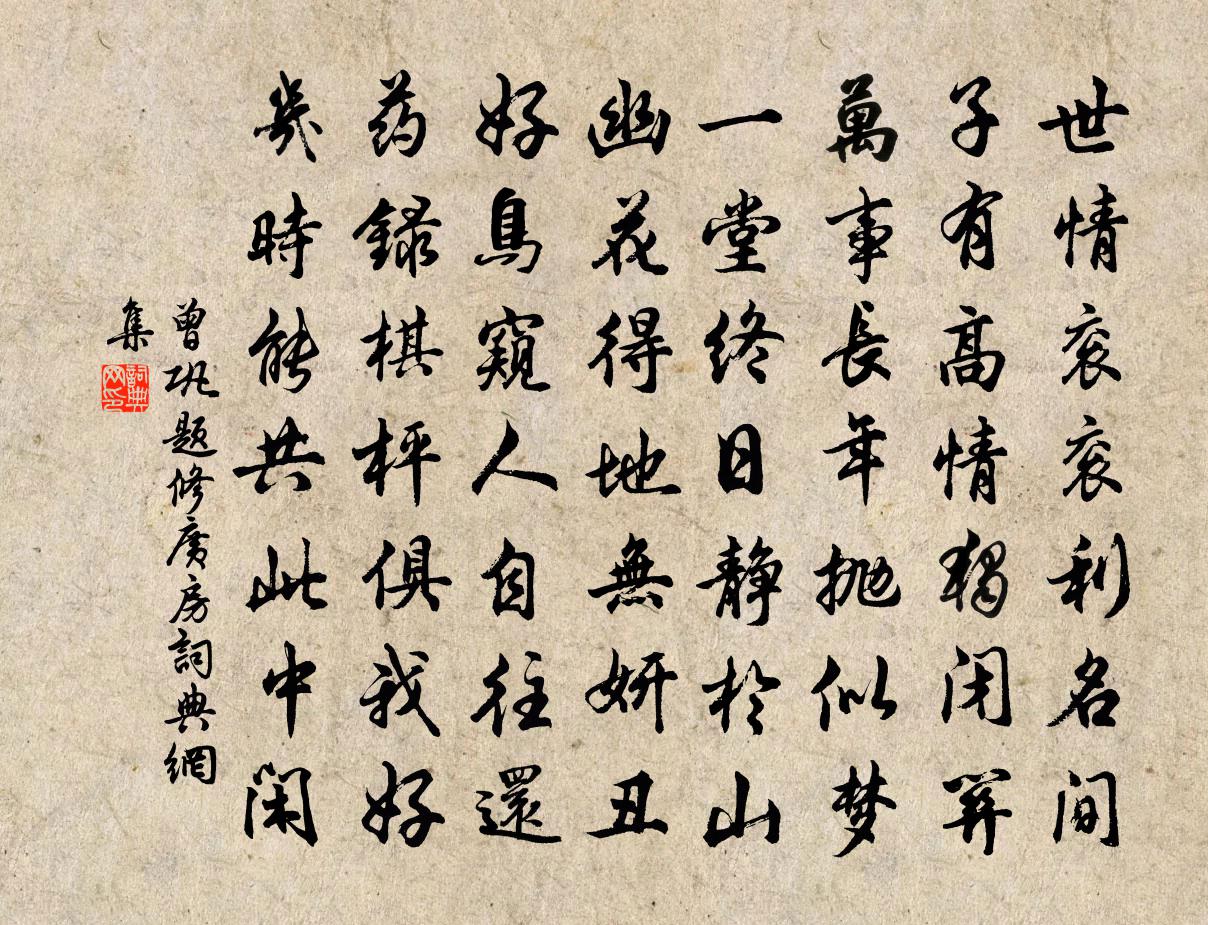 世情衮衮利名間
子有高情獨闭關
萬事長年抛似梦
一堂终日静於山
幽花得地無妍丑
好鳥窺人自往還
药録棋枰俱我好
幾時能共此中闲
曾巩题修廣房詞典網
集
詞典
网印